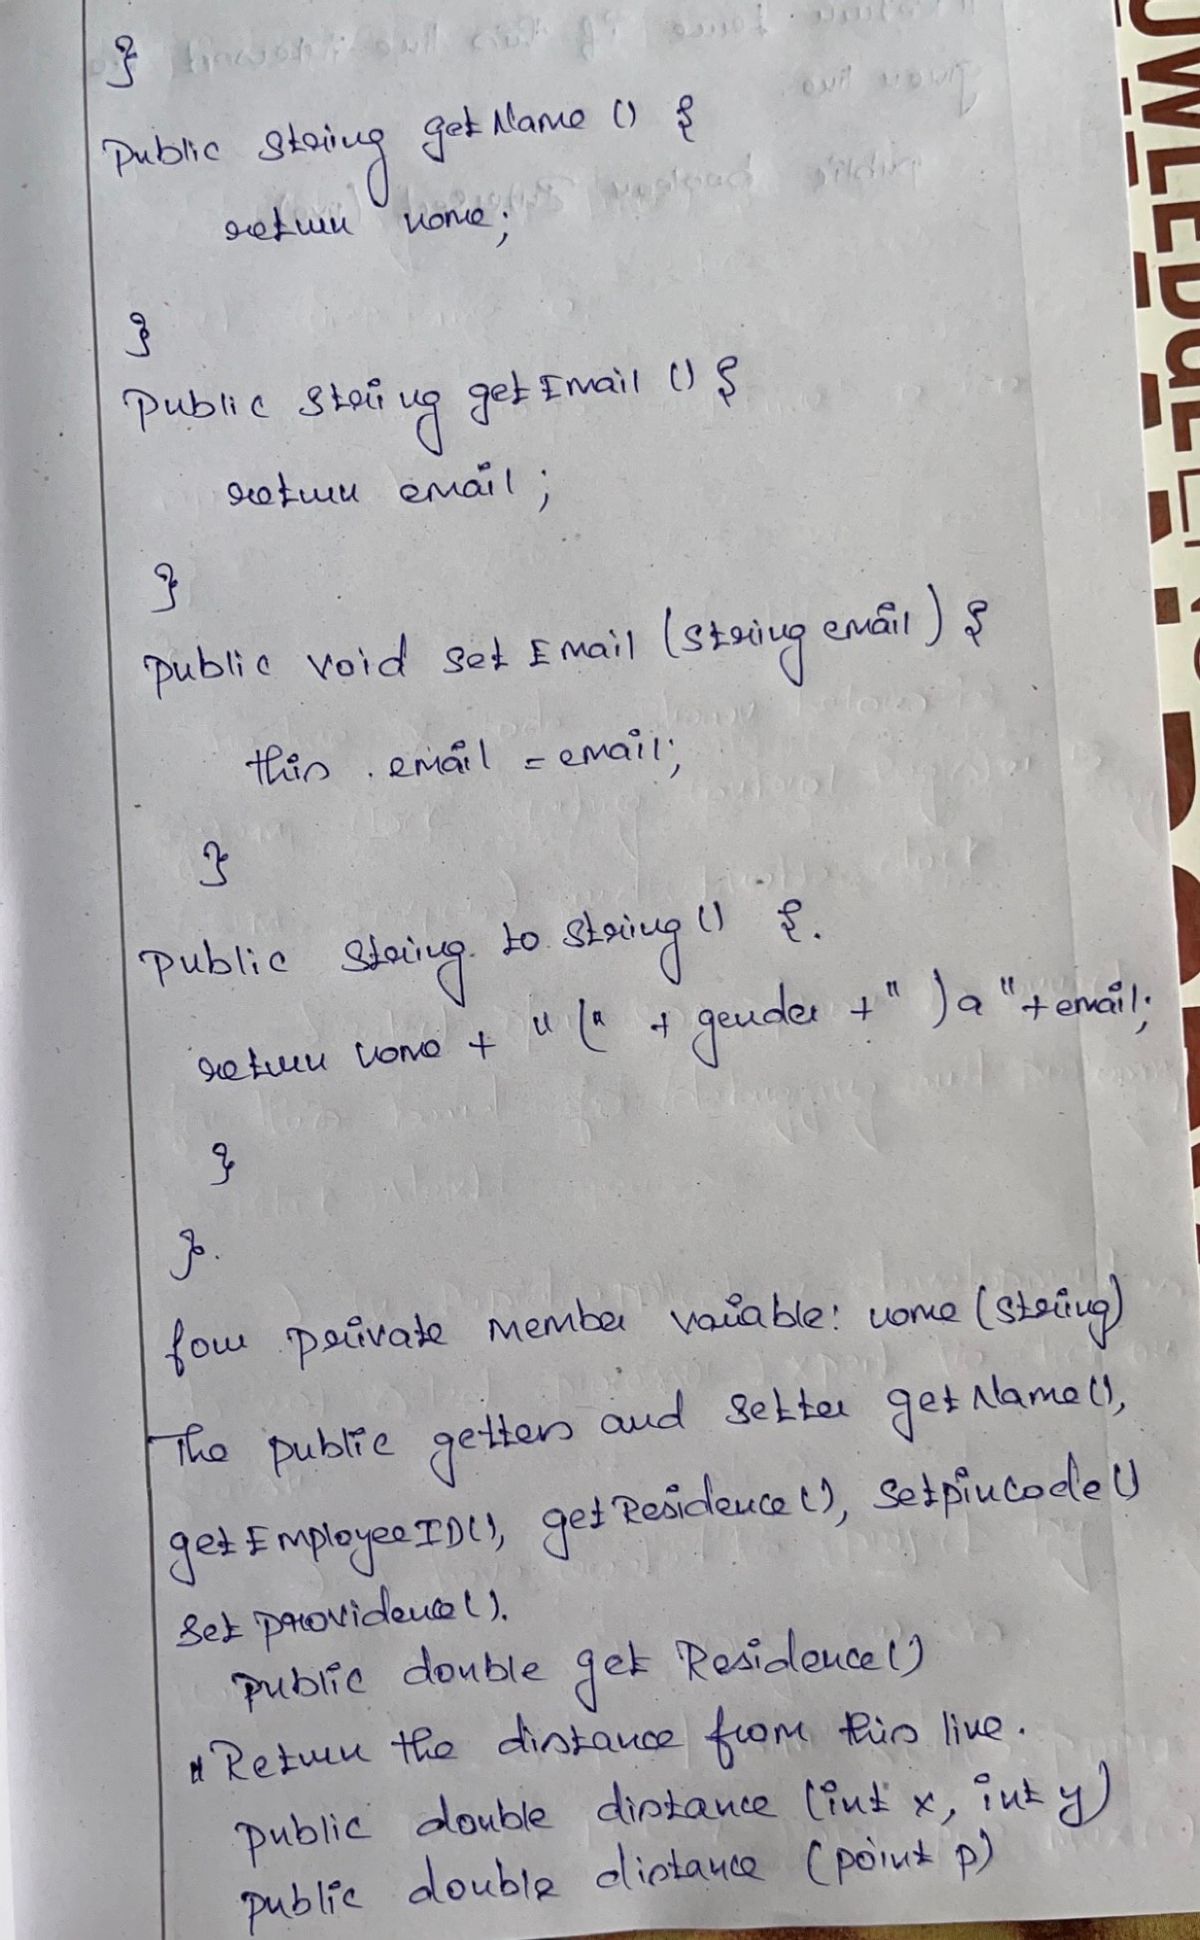 }
Public String getName () {
return name;
}
Public String getEmail () {
return email;
}
public void set Email (String email) {
this . email = email;
}
Public String to String () {.
return name + "(" + gender + " ) a " + email;
}
}.
four private member variable: name (String)
The public getters and setter getName(),
getEmployeeID(), getResidence(), setpincode()
set providence().
public double get Residence()
Return the distance from this line.
public double distance (int x, int y)
public double distance (point p)
OWLEDGE